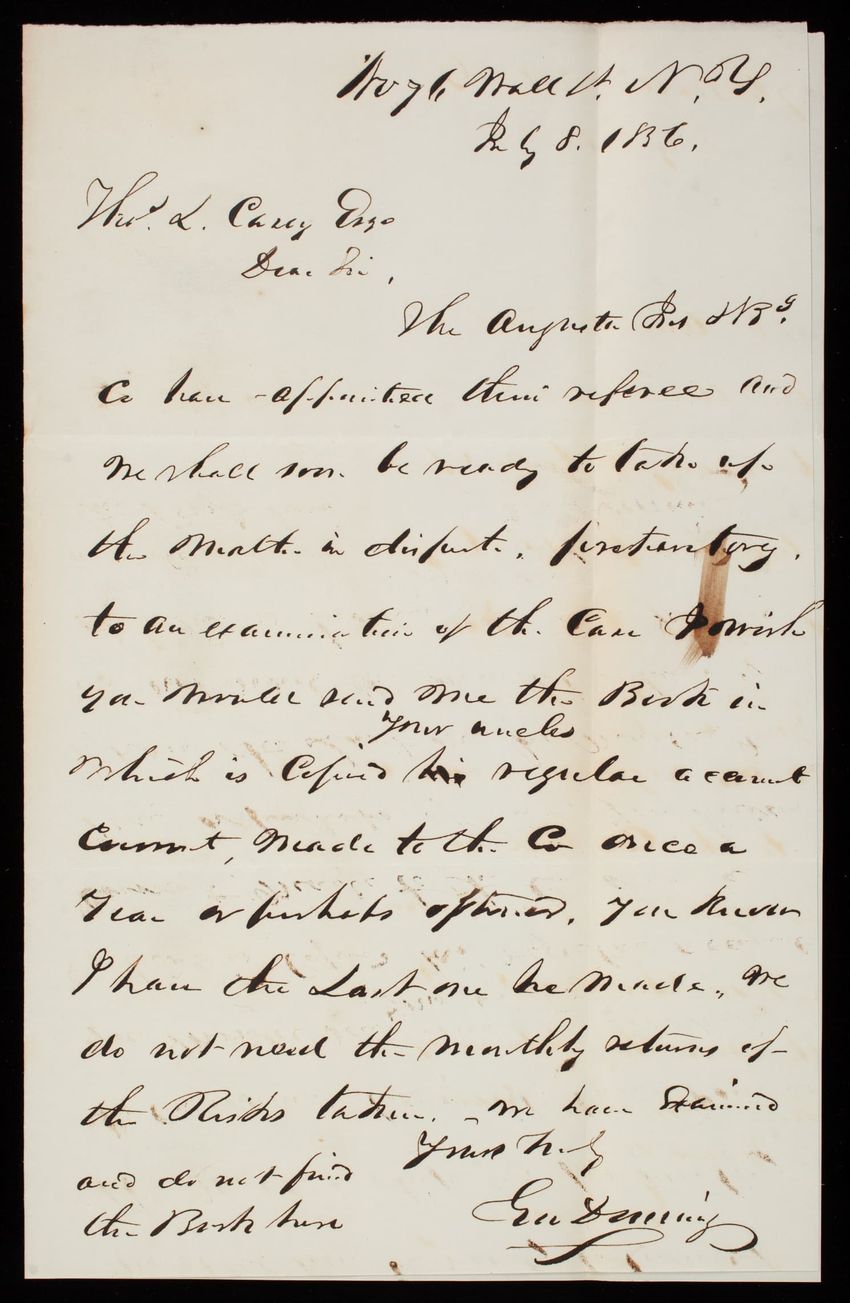 No 76 Wall St. N.Y.
July 8. 1856.
Thos. L. Casey Esqr
Dear Sir,
The Augusta Ins & Bkg
Co have appointed their referee and
we shall soon be ready to take up
the matter in dispute, preparatory,
to an examination of the Case I wish
you would send me the Book in
your uncles
which is Copied his regular account
Current, made to the Co once a
Year or perhaps oftener, you know
I have the Last one he made, We
do not need the monthly returns of
the Risks taken. - we have Examined
and do not find
the Book here
Yours truly
Geo Deming